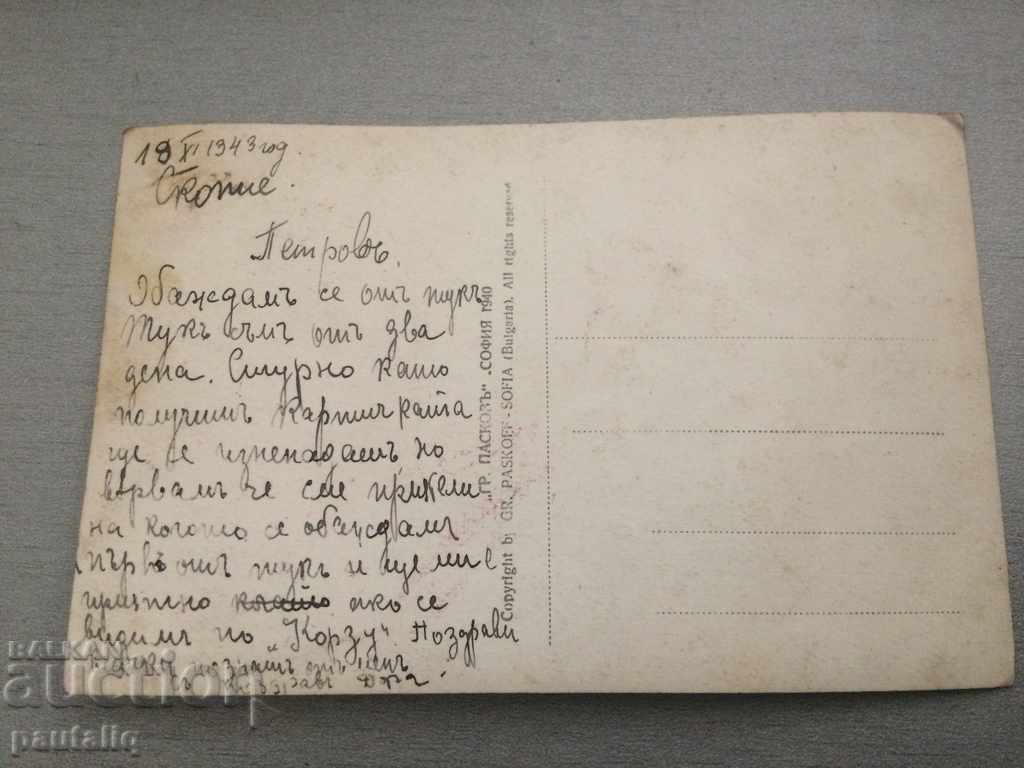 19 XI 1943 год.
Скопие.
Петровъ,
Обаждамъ се отъ тукъ
Тукъ съмъ отъ два
дена. Сигурно като
получишъ картичката
ще се изненадашъ но
вѣрвамъ че сме
на когото се обаждамъ
първъ отъ тукъ и ще ми е
приятно ако се
видимъ по „Корзу“. Поздрави
отъ менъ
„ГР. ПАСКОВЪ“ - СОФИЯ 1940
Copyright by GR. PASKOFF - SOFIA (Bulgaria). All rights reserved
BALKAN
auction
pautaliq